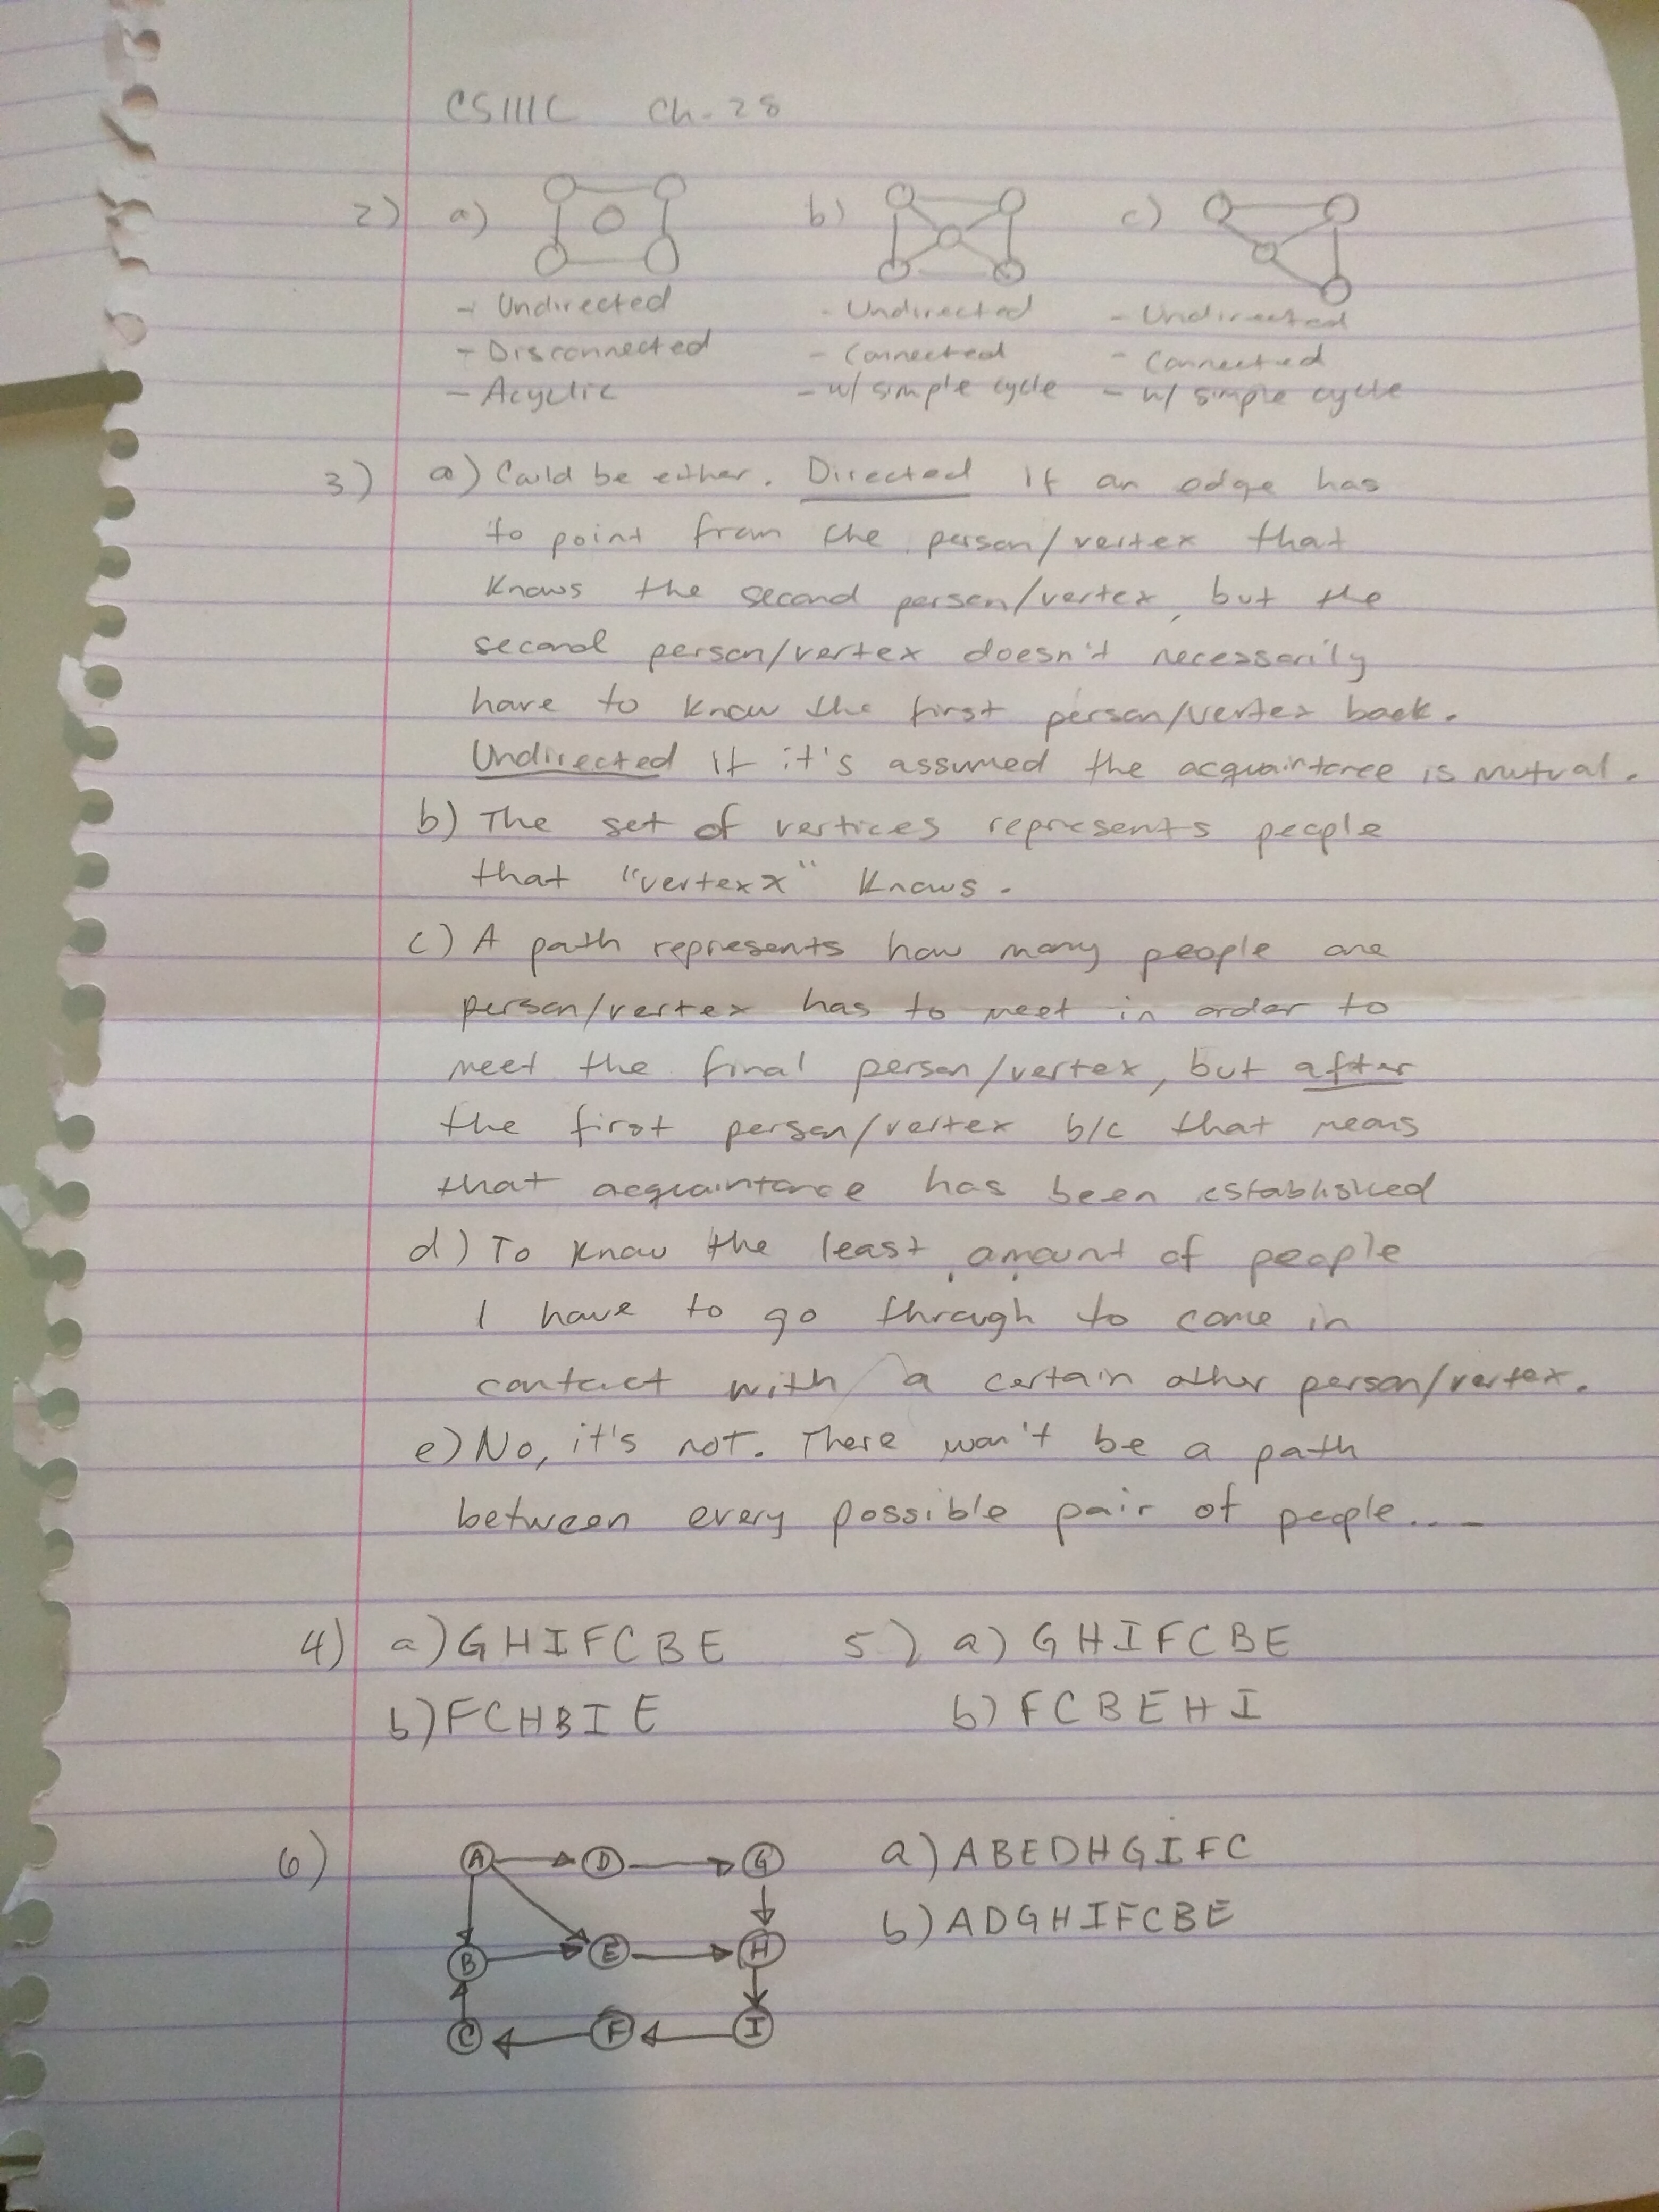 CS111C Ch. 28
2) a) b) c)
- Undirected - Undirected - Undirected
- Disconnected - Connected - Connected
- Acyclic - w/ simple cycle - w/ simple cycle
3) a) Could be either. Directed if an edge has
to point from the person/vertex that
knows the second person/vertex, but the
second person/vertex doesn't necessarily
have to know the first person/vertex back.
Undirected if it's assumed the acquaintance is mutual.
b) The set of vertices represents people
that "vertex x" knows.
c) A path represents how many people one
person/vertex has to meet in order to
meet the final person/vertex, but after
the first person/vertex b/c that means
that acquaintance has been established
d) To know the least amount of people
I have to go through to come in
contact with a certain other person/vertex.
e) No, it's not. There won't be a path
between every possible pair of people...
4) a) G H I F C B E 5) a) G H I F C B E
b) F C H B I E b) F C B E H I
6) A D G a) A B E D H G I F C
b) A D G H I F C B E
B E H
C F I